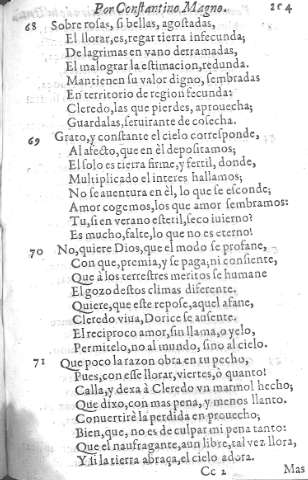 Por Constantino Magno. 254
68 Sobre rosas, si bellas, agostadas,
El llorar, es, regar tierra infecunda;
De lagrimas en vano derramadas,
El malograr la estimacion, redunda.
Mantienen su valor digno, sembradas
En territorio de region fecunda:
Cleredo, las que pierdes, aprouecha;
Guardalas, seruirante de cosecha.
69 Grato, y constante el cielo corresponde,
Al afecto, que en èl depositamos;
El solo es tierra firme, y fertil, donde,
Multiplicado el interes hallamos;
No se auentura en èl, lo que se esconde;
Amor cogemos, los que amor sembramos:
Tu, si en verano esteril, seco iuierno?
Es mucho, falte, lo que no es eterno?
70 No, quiere Dios, que el modo se profane,
Con que, premia, y se paga; ni consiente,
Que à los terrestres meritos se humane
El gozo destos climas diferente.
Quiere, que este repose, aquel afane,
Cleredo viua, Dorice se ausente.
El reciproco amor, sin llama, o yelo,
Permitelo, no al mundo, sino al cielo.
71 Que poco la razon obra en tu pecho,
Pues, con esse llorar, viertes, ò quanto!
Calla, y dexa à Cleredo vn marmol hecho;
Que dixo, con mas pena, y menos llanto.
Conuertirè la perdida en prouecho,
Bien, que, no es de culpar mi pena tanto:
Que el naufragante, aun libre, tal vez llora,
Y si la tierra abraça, el cielo adora.
Cc 2 Mas